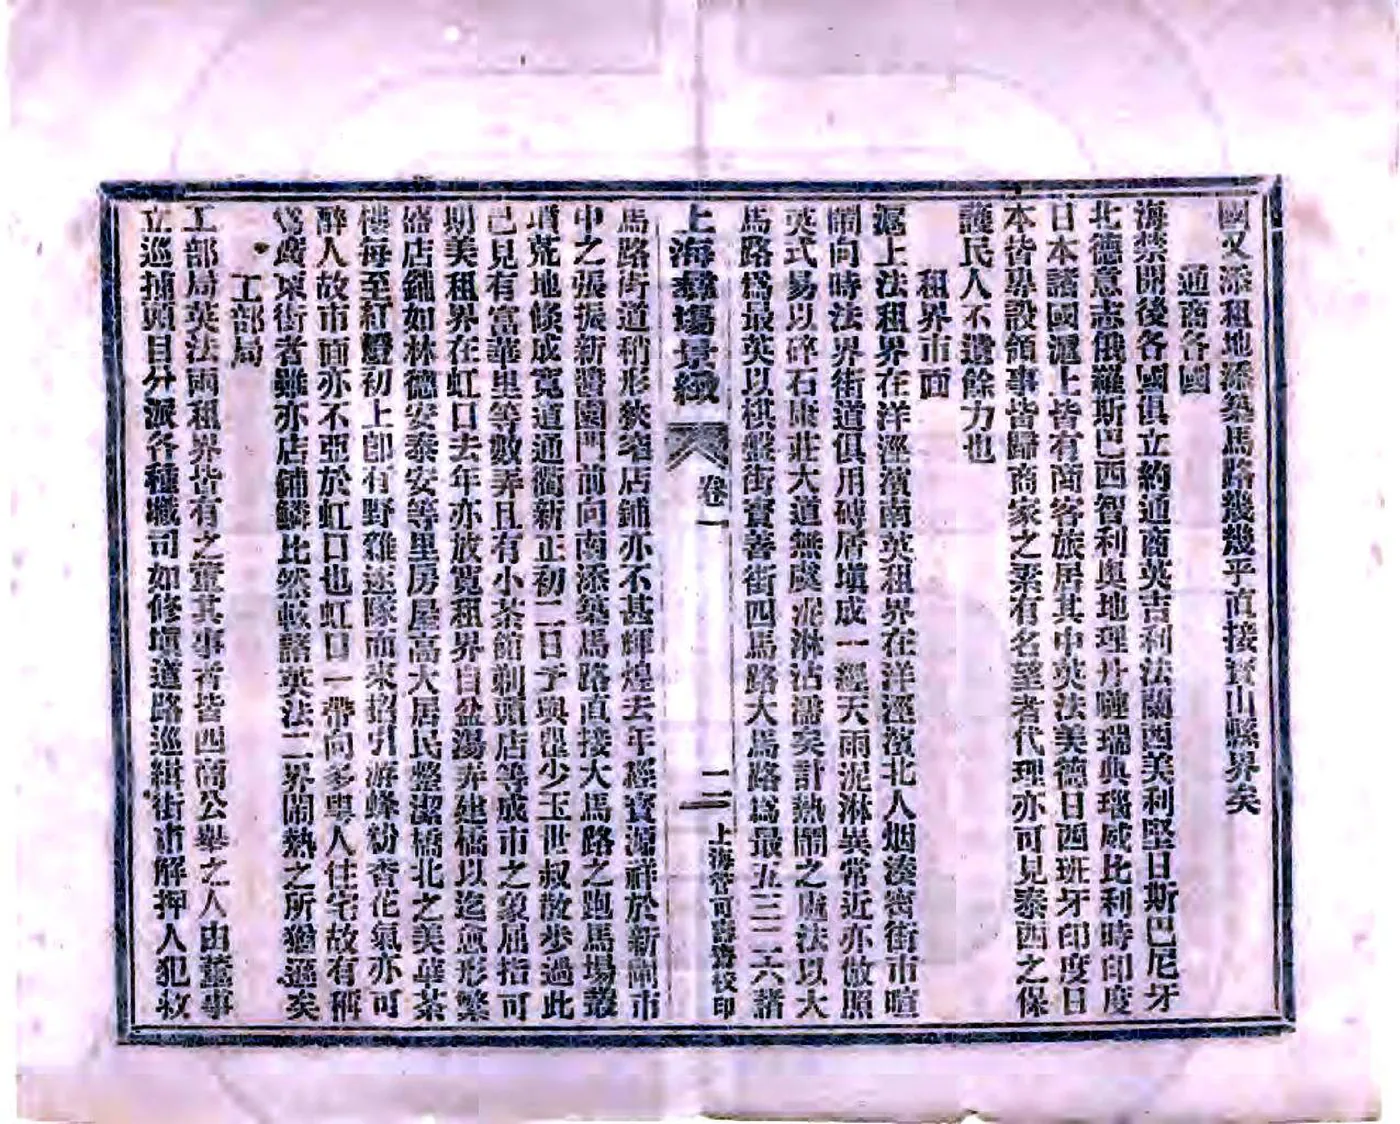 國又添租地添築馬路幾幾乎直接寶山縣界矣
通商各國
海禁開後各國俱立約通商英吉利法蘭西美利堅日斯巴尼牙
北德意志俄羅斯巴西智利奧地理丹瑞典瑙威比利時印度
日本諸國滬上皆有商客旅居其中英法美德日西班牙印度日
本皆畀設領事皆歸商家之素有名望者代理亦可見泰西之保
護民人不遺餘力也
租界市面
滬上法租界在洋涇濱南英租界在洋涇濱北人烟湊密街市喧
鬧向時法界街道俱用磚屑塡成一經天雨泥淋異常近亦倣照
英式易以碎石康莊大道無處泥淋沾濡矣計熱鬧之處法以大
馬路爲最英以棋盤街寶善街四馬路大馬路爲最五三二六諸
上海繁塲景緻
卷一
二
上海管可壽齋校印
馬路街道稍形狹窄店鋪亦不甚輝煌去年經寶源祥於新閘市
中之張振新醬園門前向南添築馬路直接大馬路之跑馬塲叢
墳荒地倏成寬道通衢新正初二日予與少玉世叔散步過此
已見有富華里等數弄且有小茶館剃頭店等成市之象屈指可
期美租界在虹口去年亦放寬租界自盆湯弄建橋以迄愈形繁
盛店鋪如林德安泰安等里房屋高大居民整潔橋北之美華茶
樓每至紅燈初上卽有野雞逐隊而來招引游蜂紛沓花氣亦可
醉人故市面亦不亞於虹口也虹口一帶向多粵人住宅故有稱
爲廣東街者雖亦店鋪鱗比然較諸英法二界鬧熱之所猶遜矣
工部局
工部局英法兩租界皆有之董其事者皆西商公舉之人由董事
立巡捕頭目分派各種職司如修塡道路巡緝街市解押人犯救